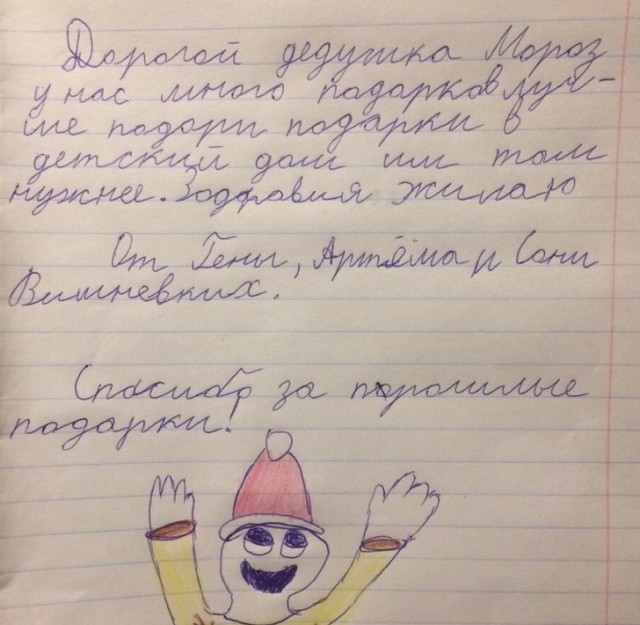 Дорогой дедушка Мороз
у нас много подарков луч-
ше подари подарки в
детский дом им там
нужнее. Здравия жилаю
От Гены, Артёма и Сони
Вишневких.
Спасибо за порошлые
подарки!